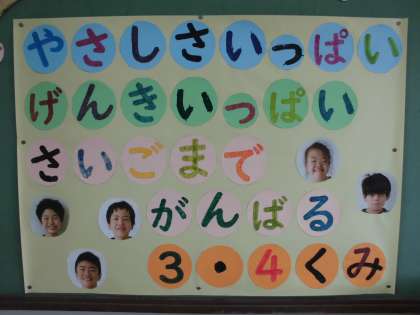 やさしさいっぱい
げんきいっぱい
さいごまで
がんばる
3・4くみ